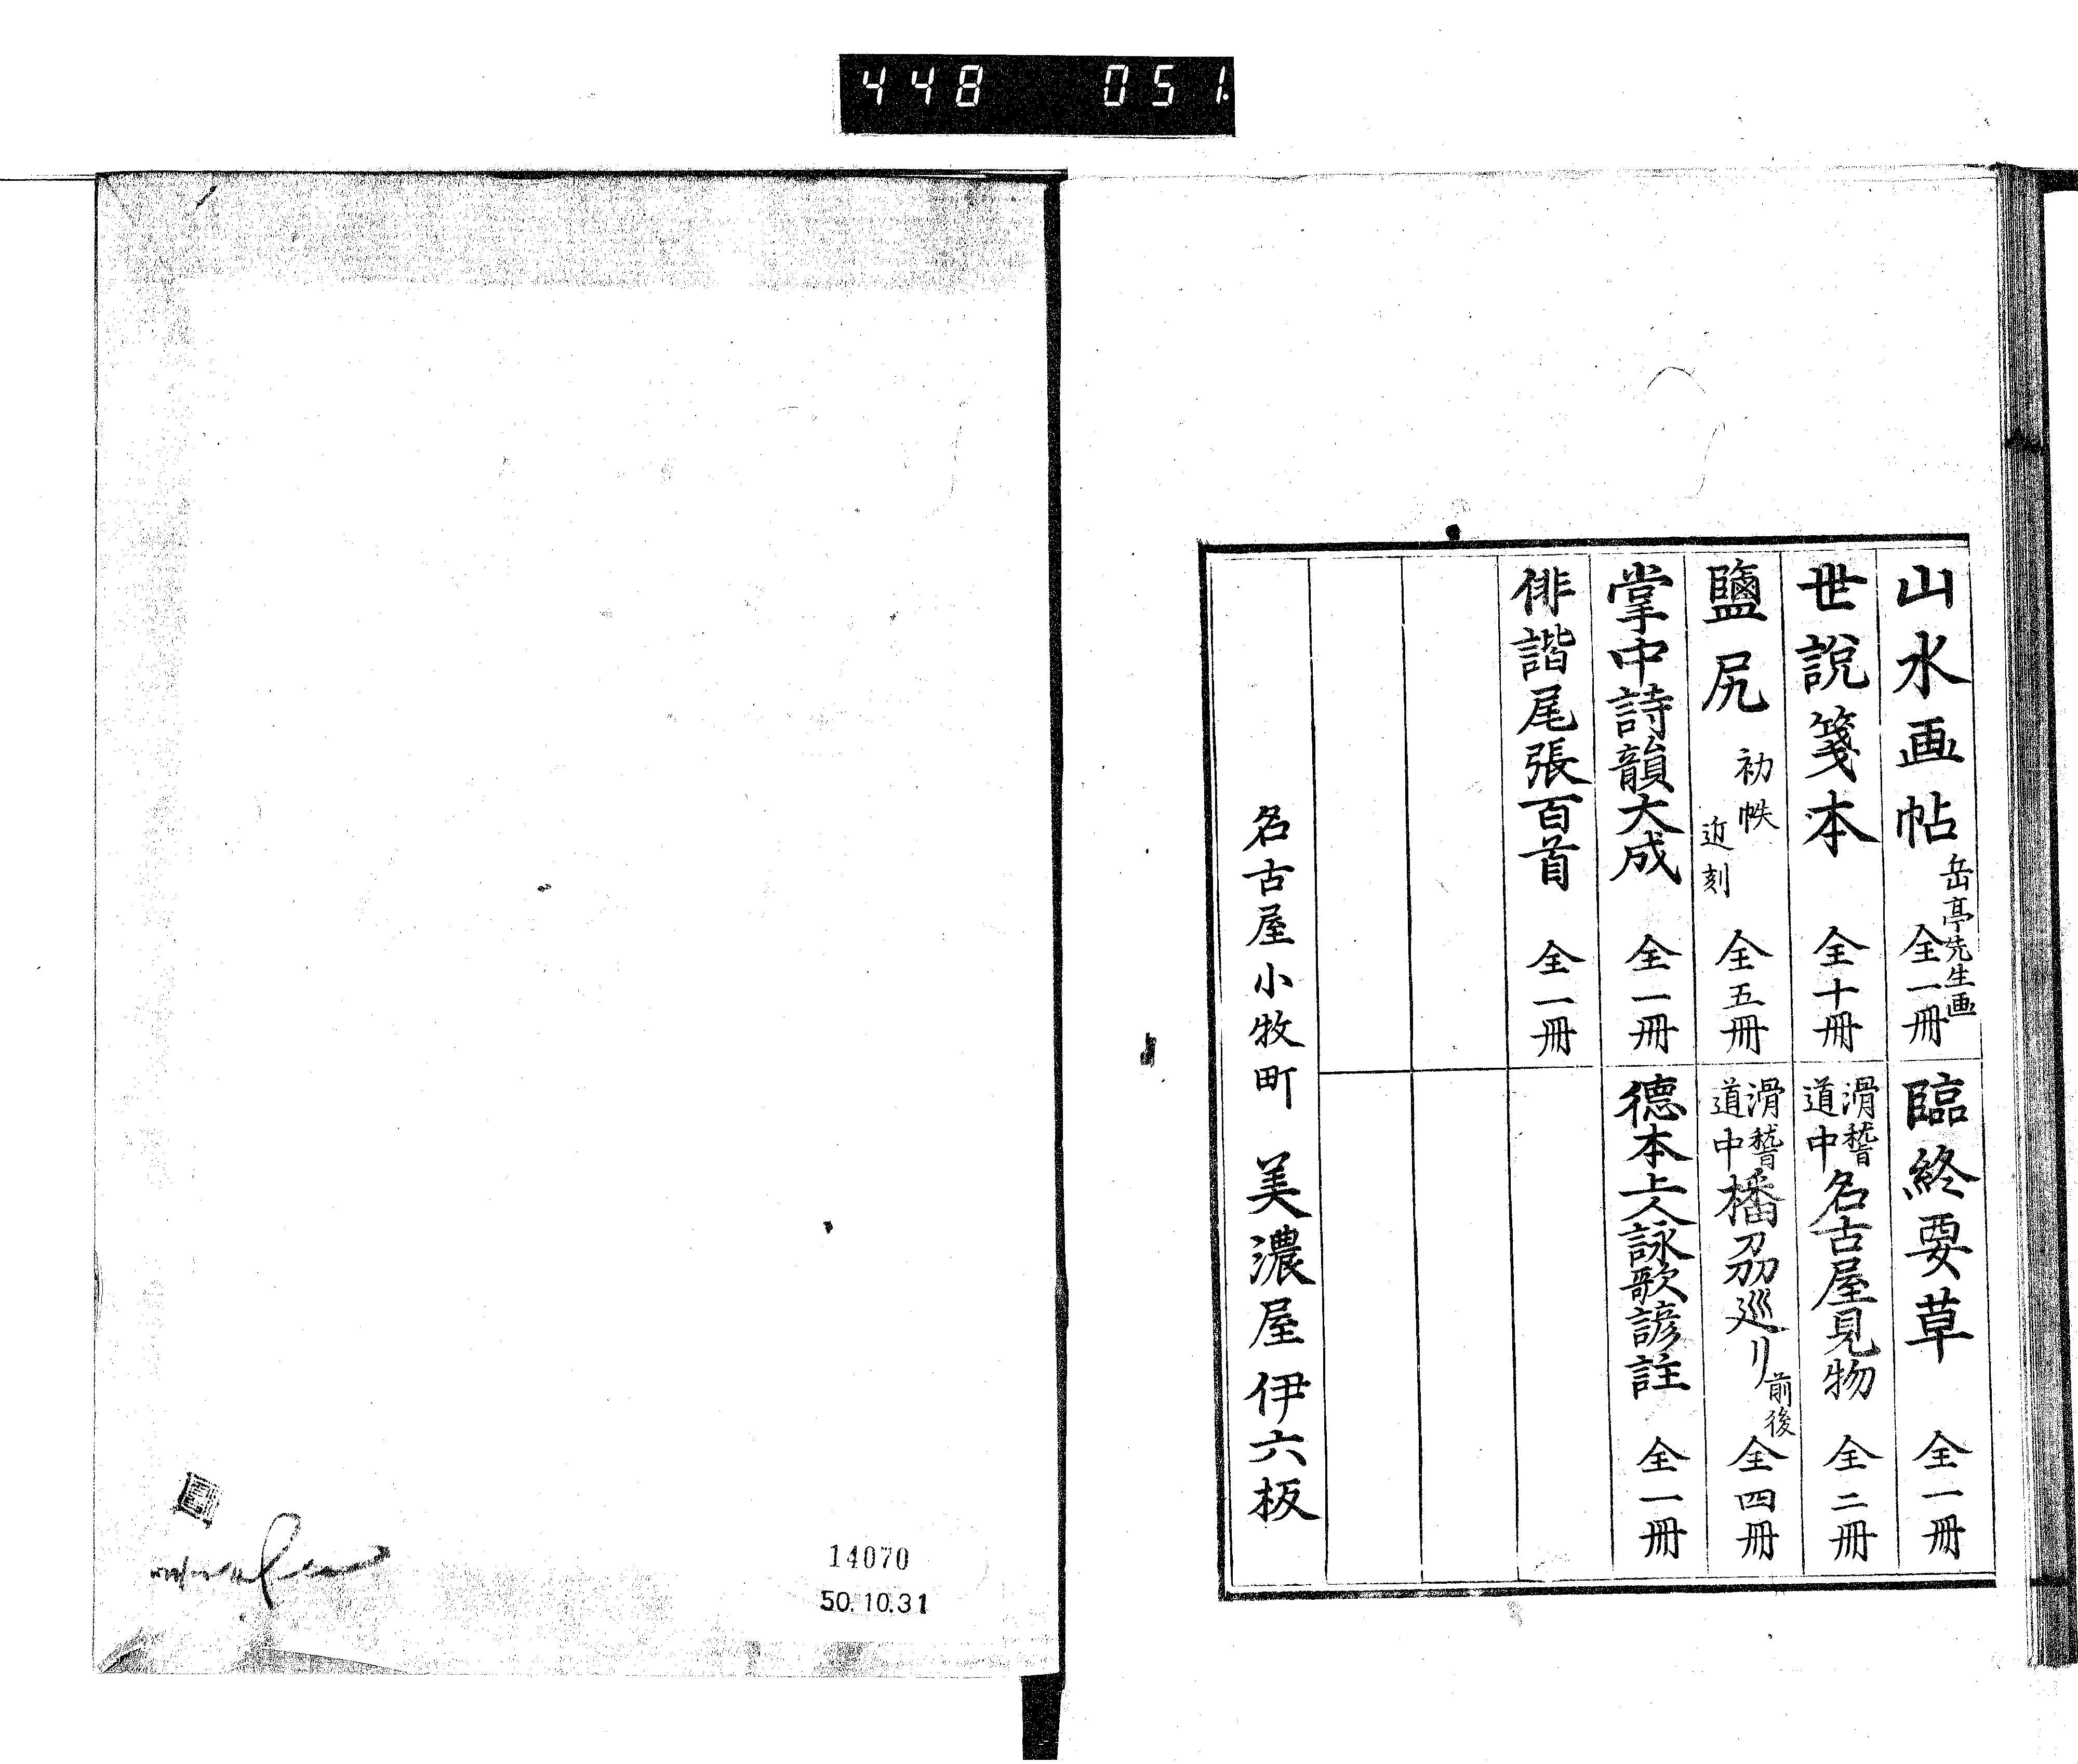 448 051
山水画帖 岳亭先生画 全一冊
世說箋本 全十冊
鹽尻 初帙 近刻 全五冊
掌中詩韻大成 全一冊
俳諧尾張百首 全一冊
臨終要草 全一冊
滑稽道中 名古屋見物 全二冊
滑稽道中 播刕巡リ 前後 全四冊
德本上人詠歌諺註 全一冊
名古屋小牧町 美濃屋伊六板
14070
50.10.31